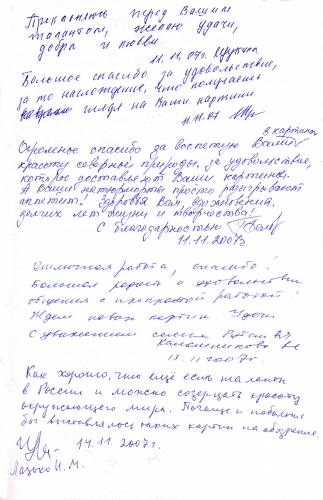 Преклоняюсь перед Вашим
талантом, желаю удачи,
добра и любви
11.11.07г.
Большое спасибо за удовольствие,
за то наслаждение, что получаешь
глядя на Ваши картины.
11.11.07
в картинах
Огромное спасибо за воспетую Вами
красоту северной природы, за удовольствие,
которое доставляют Ваши картины.
А Ваши натюрморты просто разыгрывают
аппетит! Здоровья Вам, вдохновения,
долгих лет жизни и творчества!
С благодарностью
11.11.2007г
Отличная работа, спасибо!
Большая радость и удовольствие
общения с прекрасной работой!
Ждем новых картин. Удачи
С уважением семья
13.11.2007г.
Как хорошо, что ещё есть таланты
в России и можно созерцать красоту
окружающего мира. Почаще и побольше
бы выставлялось таких картин на обозрение.
14.11.2007г.
И.М.